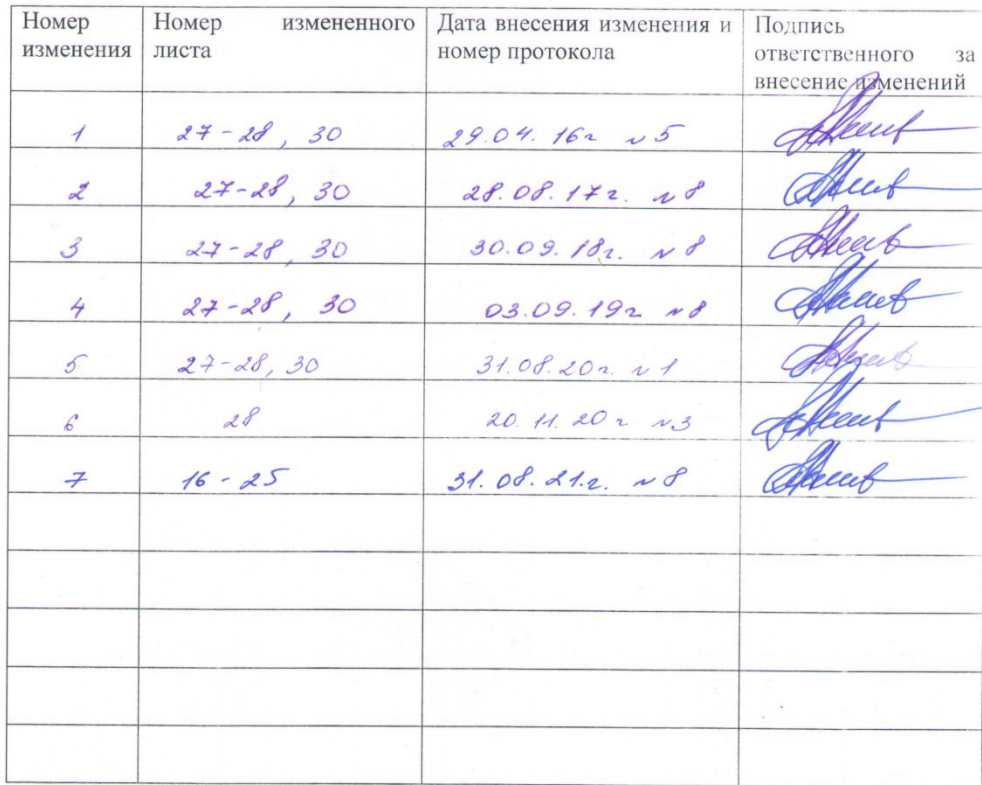 Номер изменения
Номер измененного листа
Дата внесения изменения и номер протокола
Подпись ответственного за внесение изменений
1 27-28, 30 29.04.16г №5
2 27-28, 30 28.08.17г. №8
3 27-28, 30 30.09.18г. №8
4 27-28, 30 03.09.19г №8
5 27-28, 30 31.08.20г. №1
6 28 20.11.20г №3
7 16-25 31.08.21.г. №8